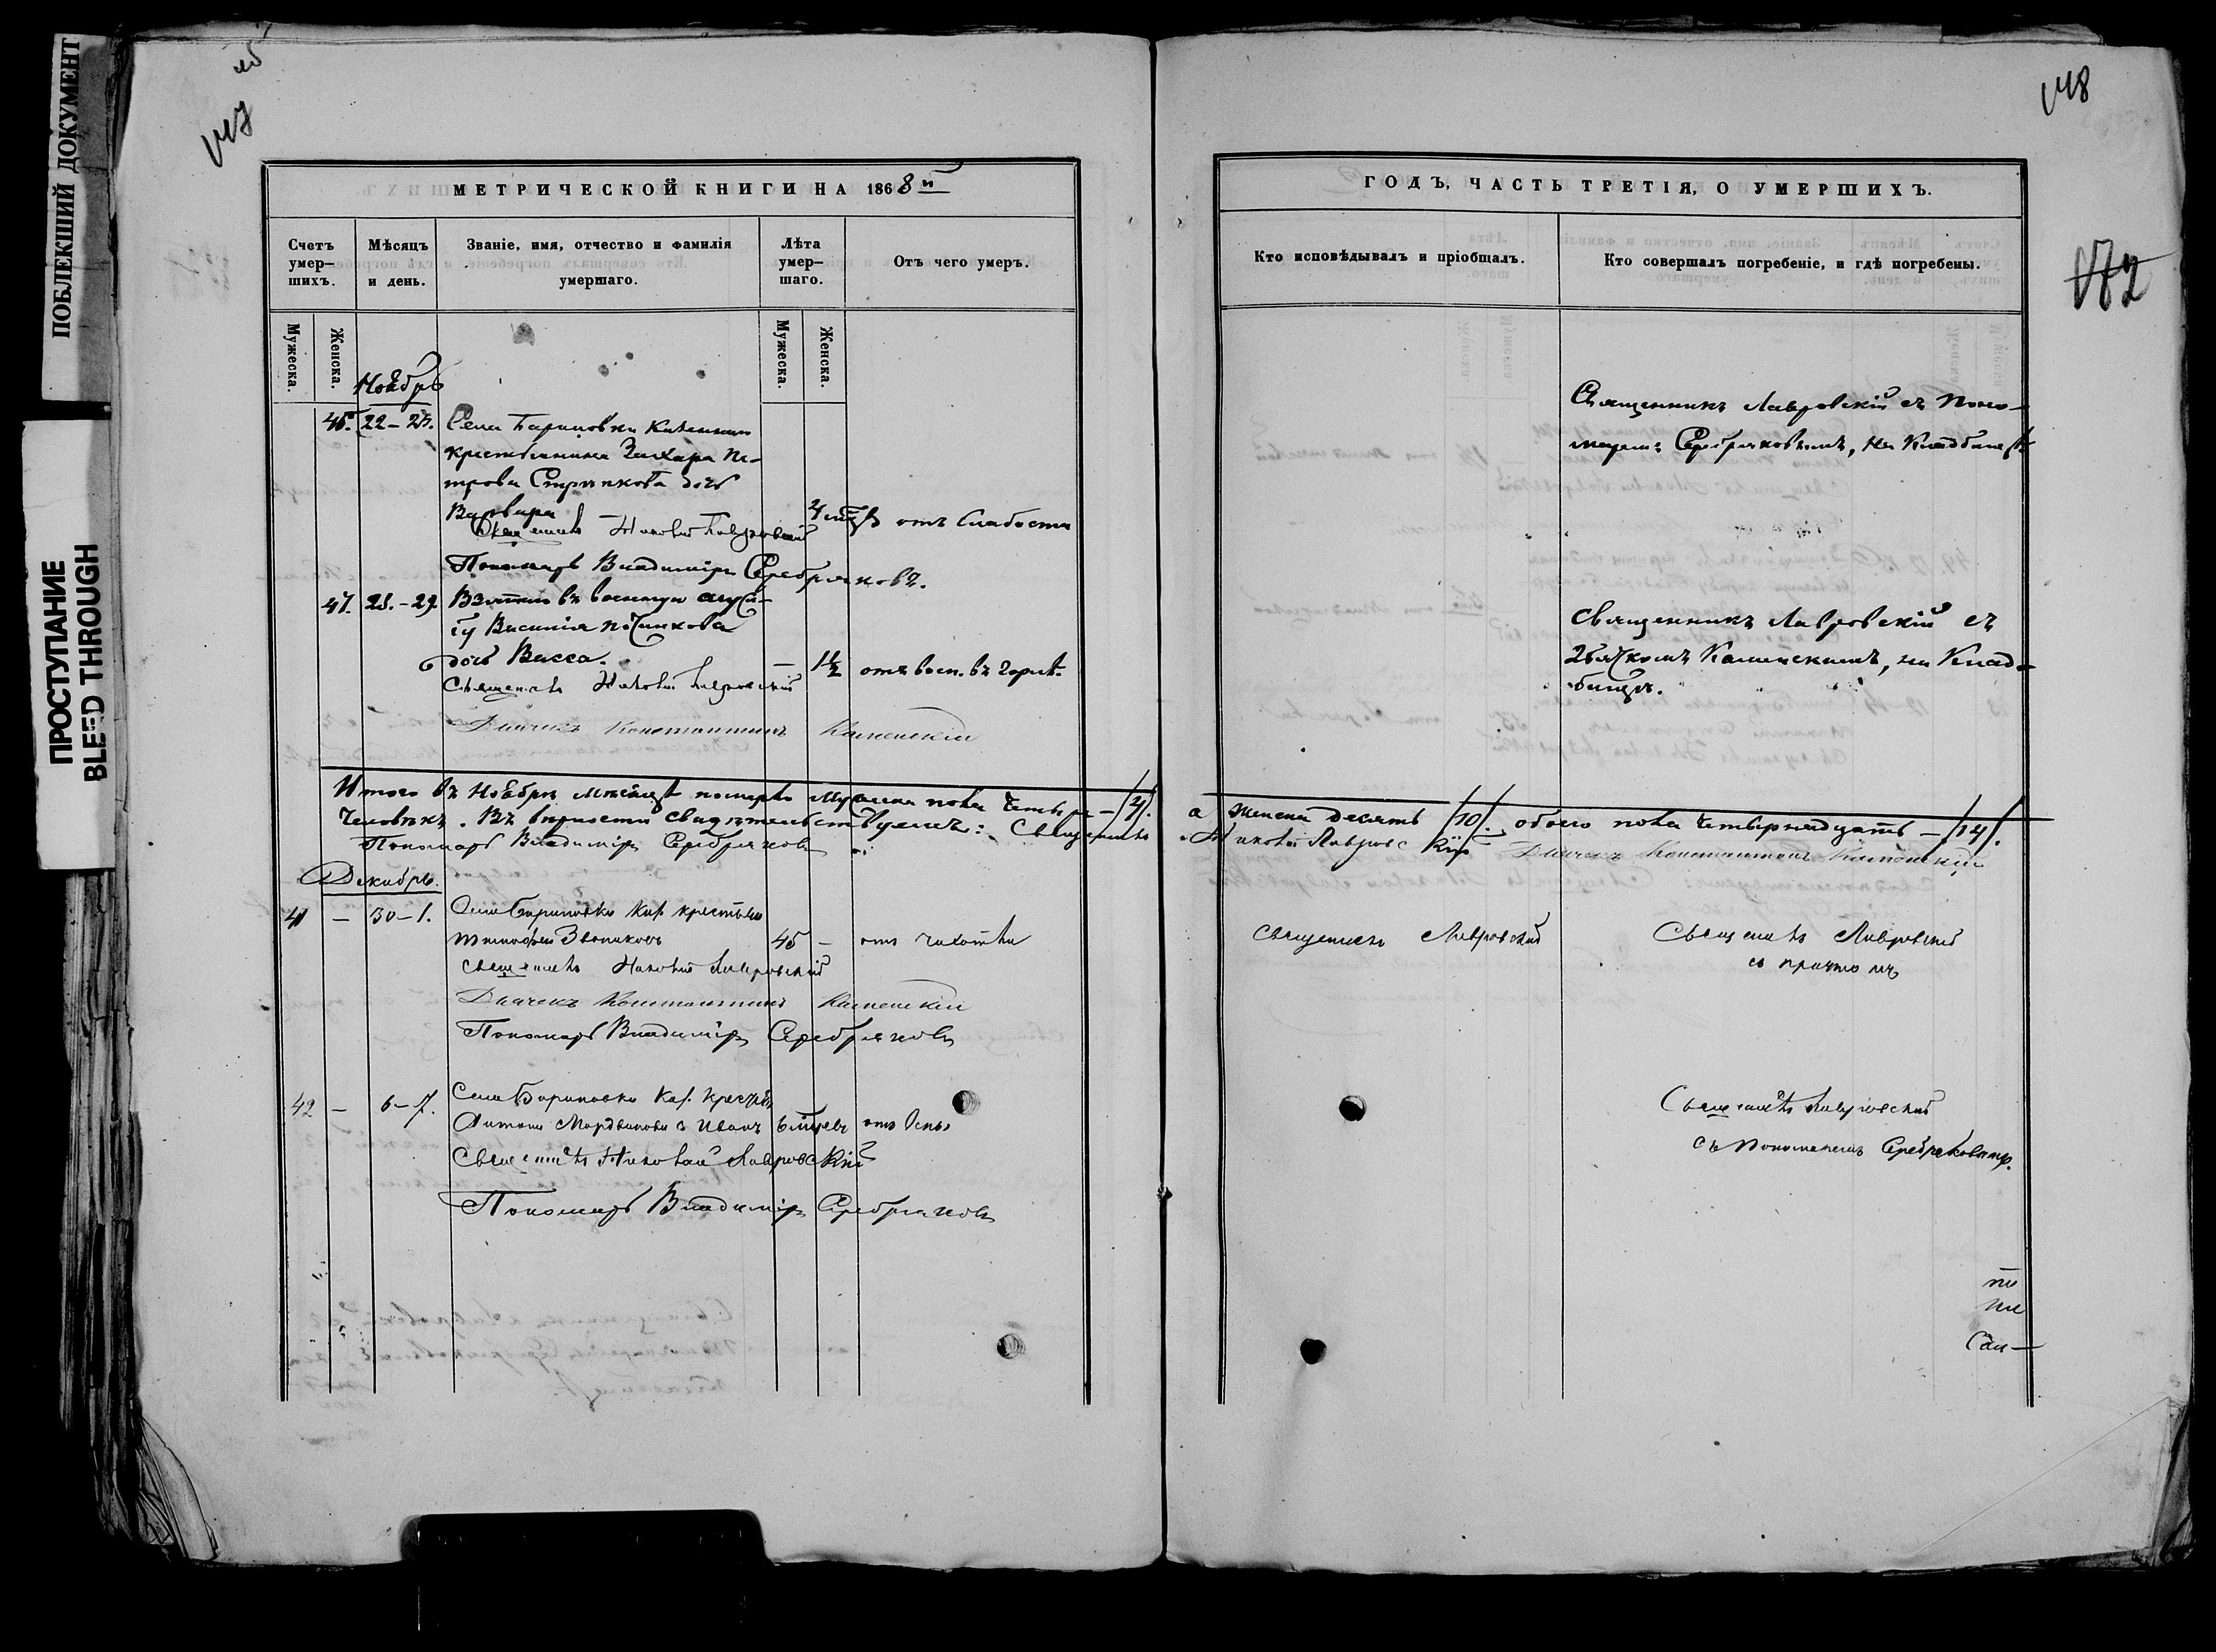 ПОБЛЕКШИЙ ДОКУМЕНТ
ПРОСТУПАНИЕ
BLEED THROUGH
148
172
МЕТРИЧЕСКОЙ КНИГИ НА 1868 й
Счетъ умер–шихъ.
Мѣсяцъ и день.
Званіе, имя, отчество и фамилія умершаго.
Лѣта умер–шаго.
Отъ чего умеръ.
Мужеска.
Женска.
Мужеска.
Женска.
Ноябрь
46. 22 – 24. Села Бариновки
крестьянина Захара Пе-
трова дочь
Варвара отъ слабости
Священникъ Николай Лавровскій
Пономарь Владиміръ Серебряковъ.
47. 28. – 29 Взятаго въ военную служ-
бу Василія
дочь Васса. – 1½ отъ восп. въ горлѣ.
Священникъ Николай Лавровскій
Дьячекъ Константинъ Каменскій
Итого въ Ноябрѣ мѣсяцѣ померло мужеска пола четыре – /4/.
человѣкъ. Въ вѣрности свидѣтельствуемъ: Священникъ
Пономарь Владиміръ Серебряковъ
Декабрь.
41 – 30 – 1. Села Бариновки
Тимофей Звониковъ 45 – отъ чахотки
Священникъ Николай Лавровскій
Дьячекъ Константинъ Каменскій
Пономарь Владиміръ Серебряковъ
42 – 6 – 7. Села Бариновки
Антона Мордвинова с. Иванъ 6 отъ оспы
Священникъ Николай Лавровскій
Пономарь Владиміръ Серебряковъ
ГОДЪ, ЧАСТЬ ТРЕТІЯ, О УМЕРШИХЪ.
Кто исповѣдывалъ и пріобщалъ.
Кто совершалъ погребеніе, и гдѣ погребены.
Священникъ Лавровскій съ Поно-
маремъ Серебряковымъ, на Кладбищѣ
Священникъ Лавровскій съ
Дьячкомъ Каменскимъ, на Клад-
бищѣ.
а женска десять /10/. обоего пола четырнадцать – /14/.
Николай Лавровскій Дьячекъ Константинъ Каменскій
Священникъ Лавровскій
Священникъ Лавровскій
съ причтомъ
Священникъ Лавровскій
съ Пономаремъ Серебряковымъ.
по
Сам–